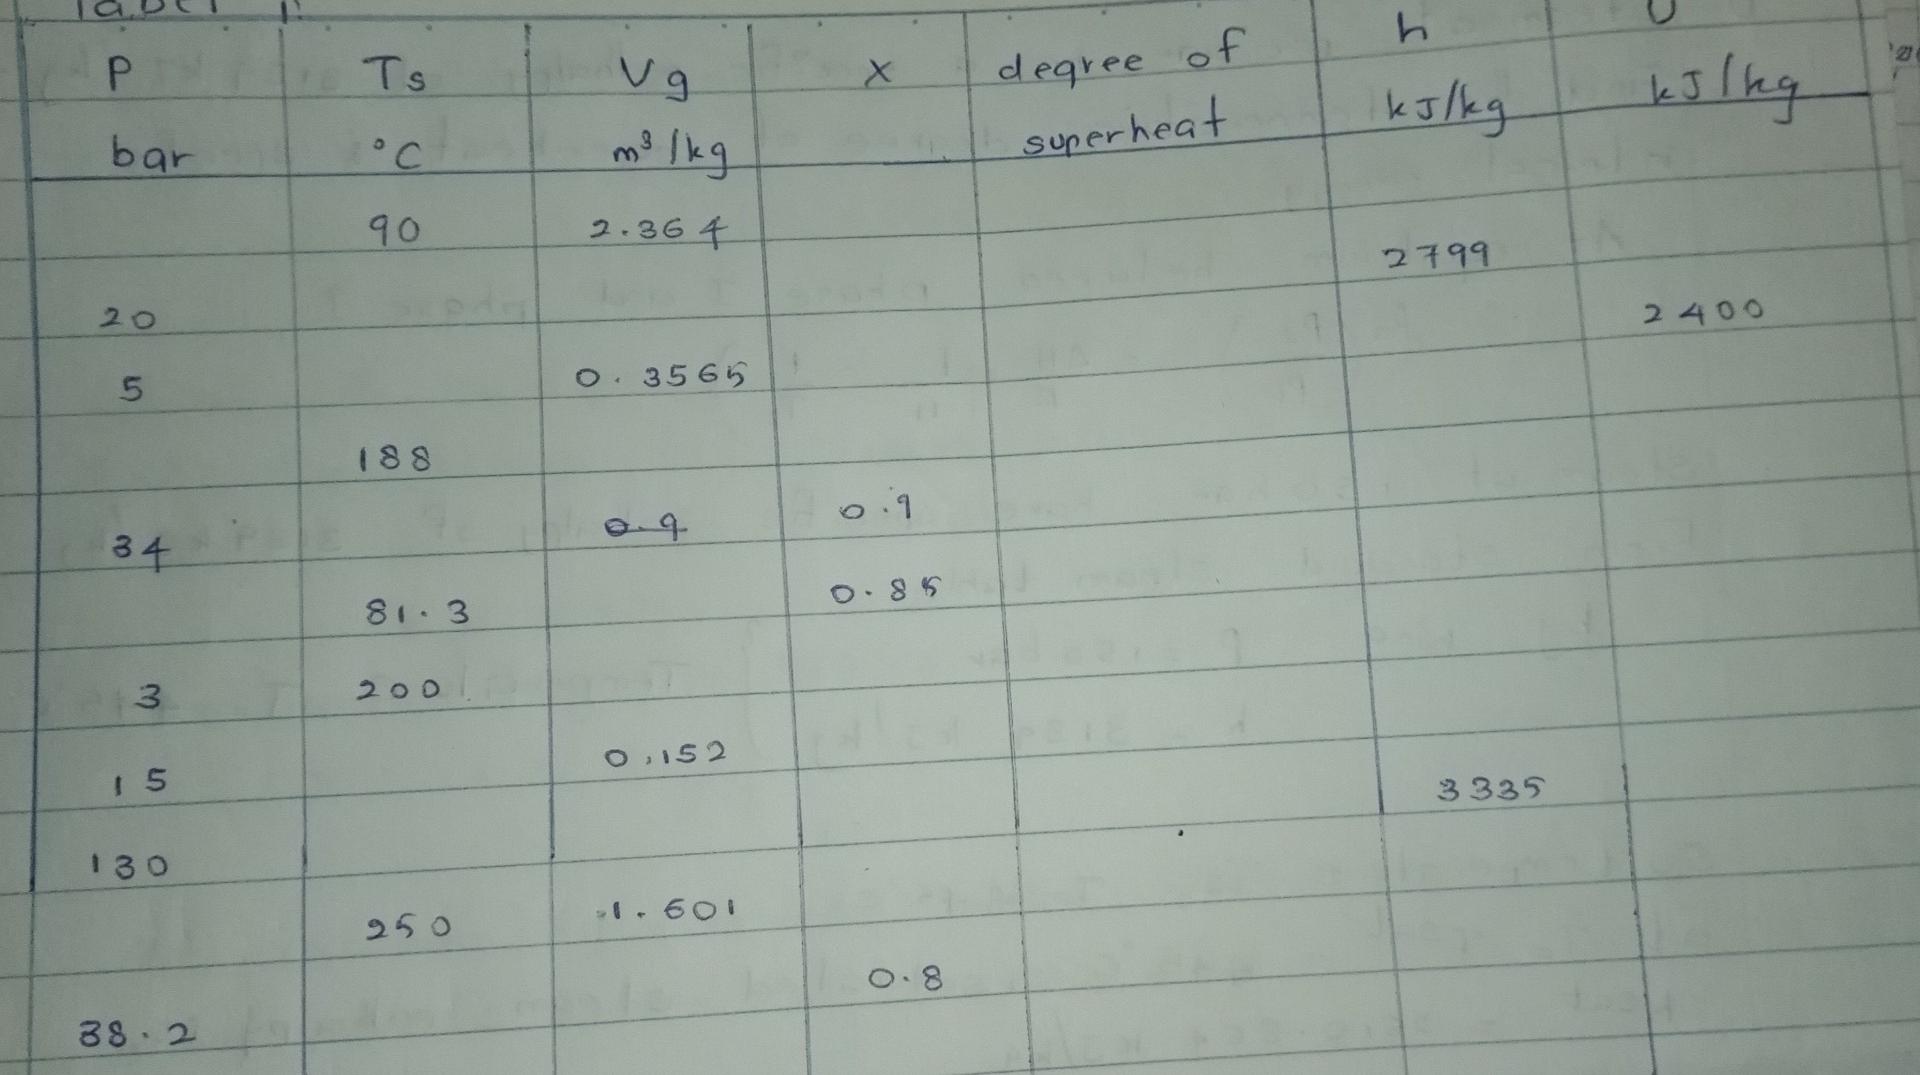 Tabel 1:
P Ts Vg x degree of h U
bar °C m³/kg superheat kJ/kg kJ/kg
90 2.364
20 2799
5 0.3565 2400
188
34 0.9 0.9
81.3 0.85
3 200
15 0.152
130 3335
250 1.601
38.2 0.8